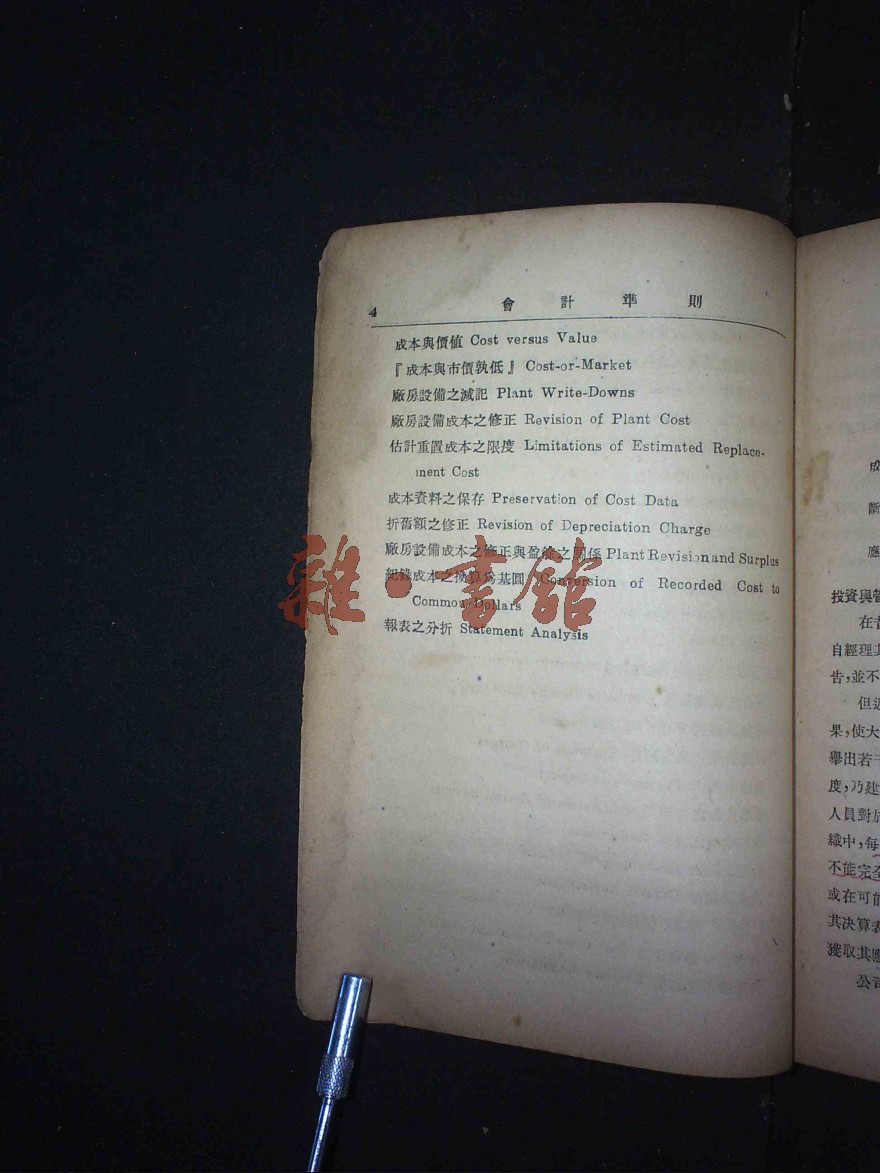 4 會計準則
成本與價值 Cost versus Value
『成本與市價孰低』 Cost-or-Market
廠房設備之減記 Plant Write-Downs
廠房設備成本之修正 Revision of Plant Cost
估計重置成本之限度 Limitations of Estimated Replace-
ment Cost
成本資料之保存 Preservation of Cost Data
折舊額之修正 Revision of Depreciation Charge
廠房設備成本之修正與盈餘之關係 Plant Revision and Surplus
紀錄成本之換算爲基圓 Conversion of Recorded Cost to
Common Dollars
報表之分折 Statement Analysis
雜·書館
成
斷
應
投資與管
在昔
自經理其
告,並不
但近
果,使大
舉出若干
度,乃建
人員對於
織中,每
不能完全
或在可能
其决算表
獲取其應
公司